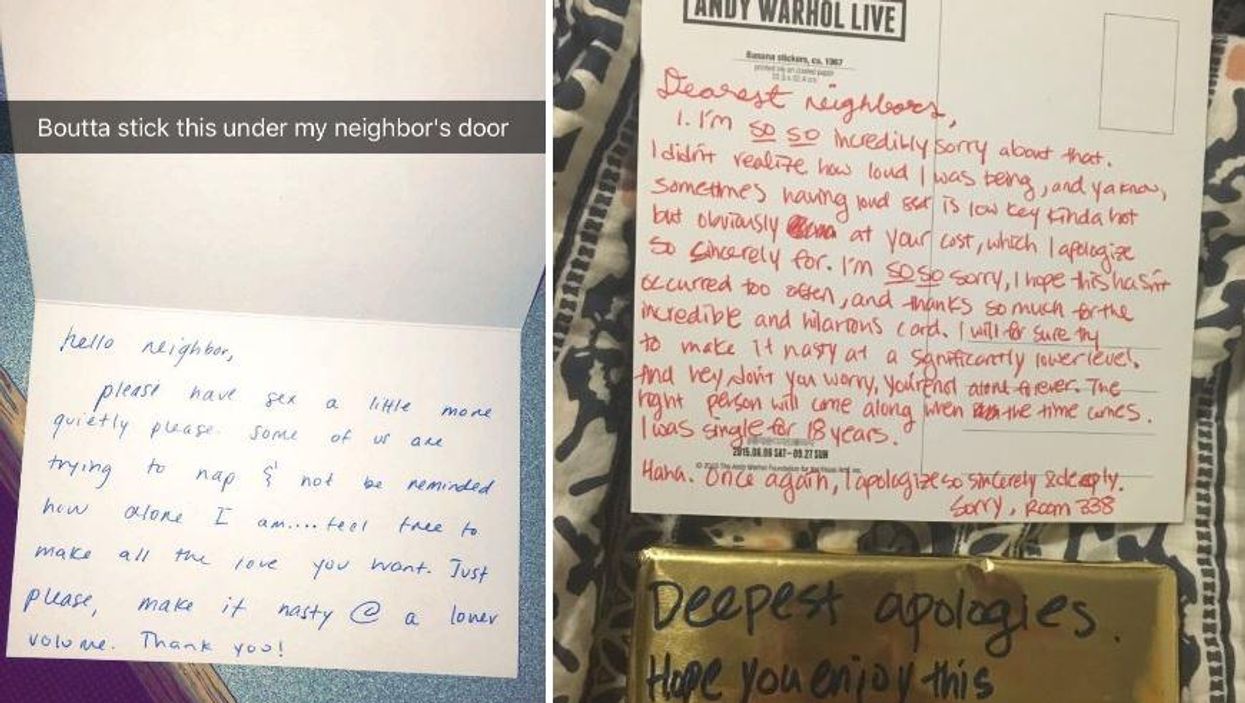 Boutta stick this under my neighbor's door
hello neighbor,
please have sex a little more
quietly please. Some of us are
trying to nap & not be reminded
how alone I am....feel free to
make all the love you want. Just
please, make it nasty @ a lower
volume. Thank you!
ANDY WARHOL LIVE
Banana stickers, ca. 1967
printed ink on coated paper
Dearest neighbors,
1. I'm so so incredibly sorry about that.
I didn't realize how loud I was being, and ya know,
sometimes having loud sex is low key kinda hot
but obviously at your cost, which I apologize
so sincerely for. I'm so so sorry, I hope this hasn't
occurred too often, and thanks so much for the
incredible and hilarious card. I will for sure try
to make it nasty at a significantly lower level.
And hey don't you worry, you're not alone forever. The
right person will come along when the time comes.
I was single for 18 years.
2015.06.06 SAT-09.27 SUN
The Andy Warhol Foundation for the Visual Arts, Inc.
Haha. Once again, I apologize so sincerely & deeply.
Sorry, Room 338
Deepest apologies.
Hope you enjoy this